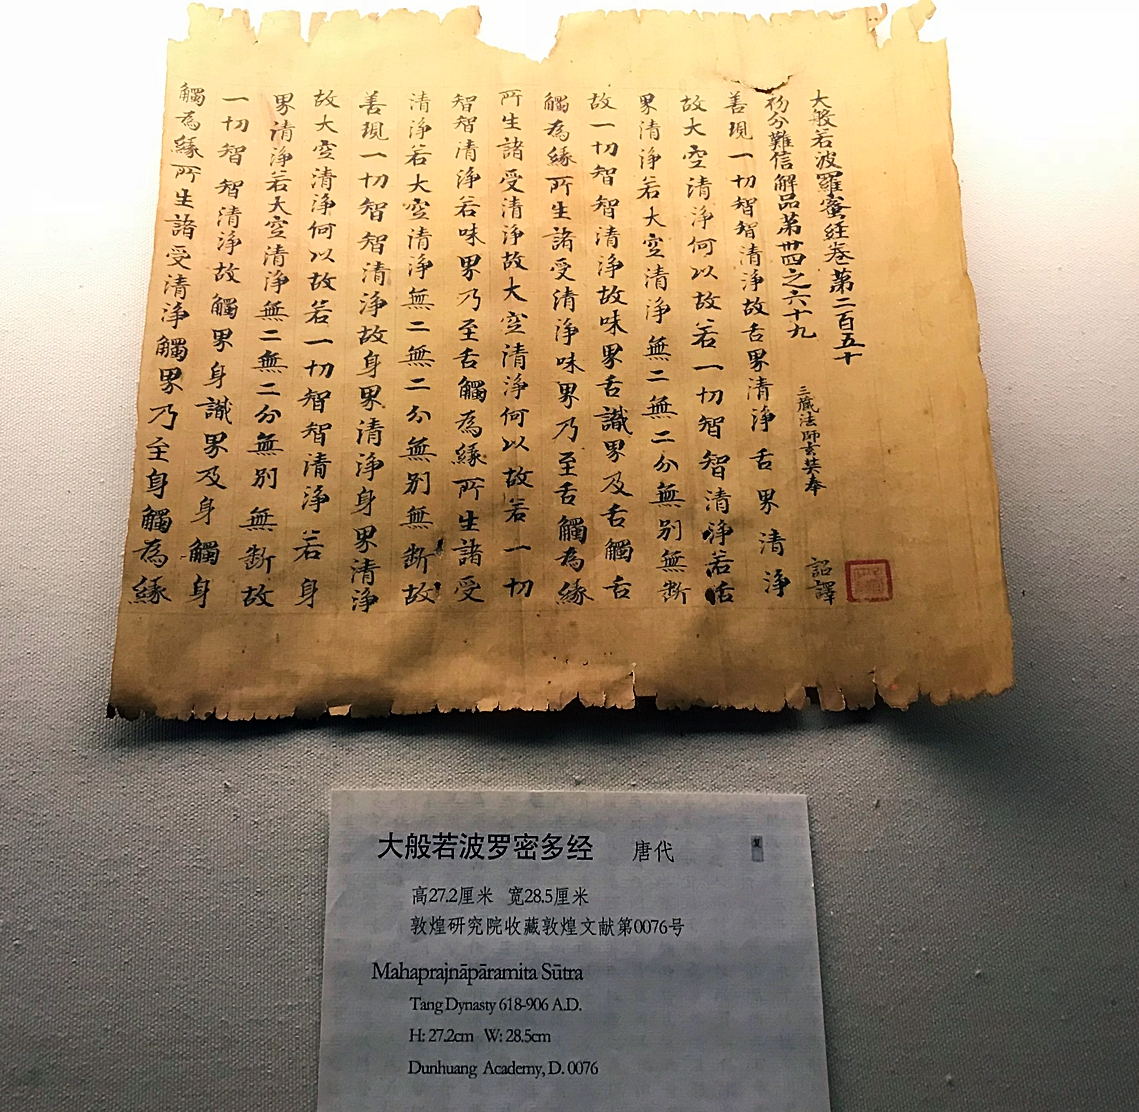 大般若波羅蜜經卷第二百五十
初分難信解品第卅四之六十九 三藏法師玄奘奉 詔譯
善現一切智智清淨故舌界清淨舌界清淨
故大空清淨何以故若一切智智清淨若舌
界清淨若大空清淨無二無二分無別無断
故一切智智清淨故味界舌識界及舌觸舌
觸為緣所生諸受清淨味界乃至舌觸為緣
所生諸受清淨故大空清淨何以故若一切
智智清淨若味界乃至舌觸為緣所生諸受
清淨若大空清淨無二無二分無別無断故
善現一切智智清淨故身界清淨身界清淨
故大空清淨何以故若一切智智清淨若身
界清淨若大空清淨無二無二分無別無断故
一切智智清淨故觸界身識界及身觸身
觸為緣所生諸受清淨觸界乃至身觸為緣
大般若波罗密多经 唐代
复
高27.2厘米 宽28.5厘米
敦煌研究院收藏敦煌文献第0076号
Mahaprajnāpāramita Sūtra
Tang Dynasty 618-906 A.D.
H: 27.2cm W: 28.5cm
Dunhuang Academy, D. 0076